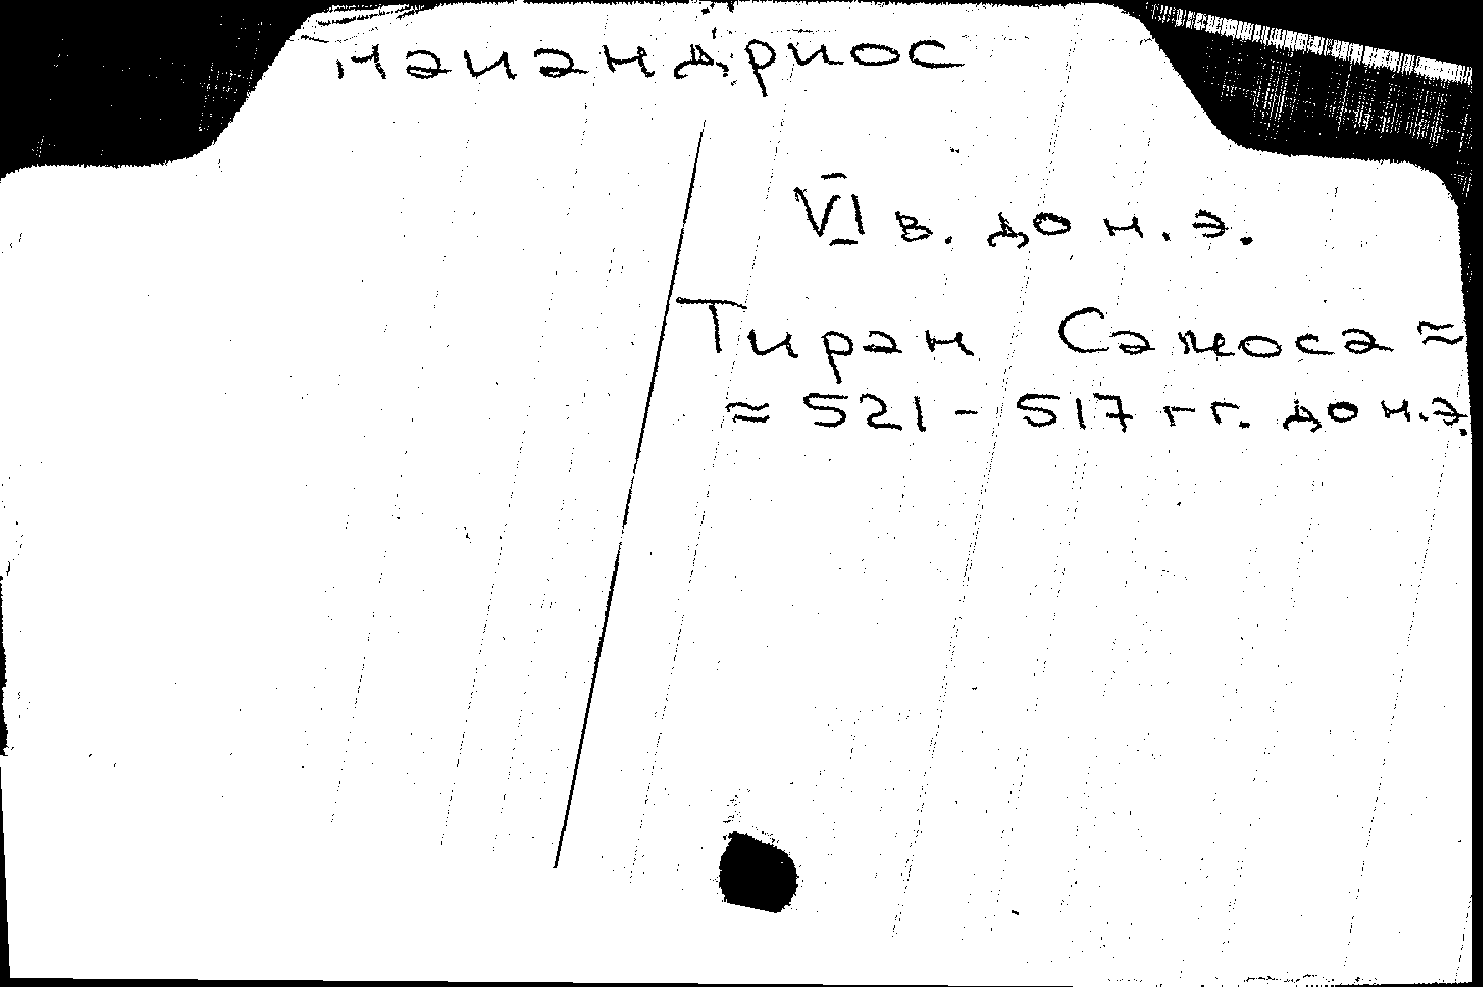 маиандриос
VI в. до н. э.
Тиран Самоса ≈
≈ 521 - 517 гг. до н.э.